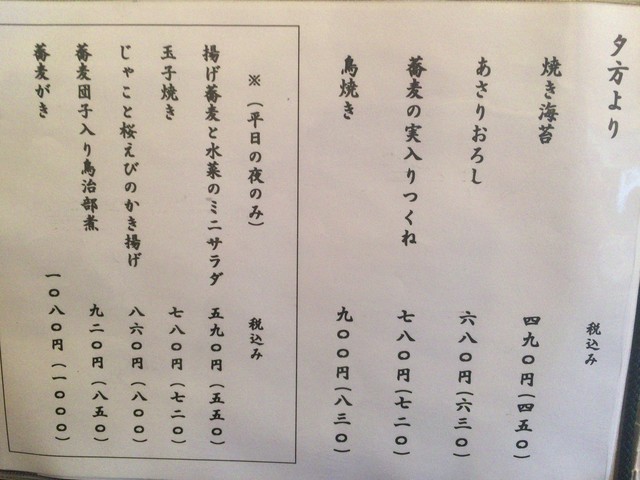 夕方より
税込み
焼き海苔 四九〇円(四五〇)
あさりおろし 六八〇円(六三〇)
蕎麦の実入りつくね 七八〇円(七二〇)
鳥焼き 九〇〇円(八三〇)
※(平日の夜のみ) 税込み
揚げ蕎麦と水菜のミニサラダ 五九〇円(五五〇)
玉子焼き 七八〇円(七二〇)
じゃこと桜えびのかき揚げ 八六〇円(八〇〇)
蕎麦団子入り鳥治部煮 九二〇円(八五〇)
蕎麦がき 一〇八〇円(一〇〇〇)